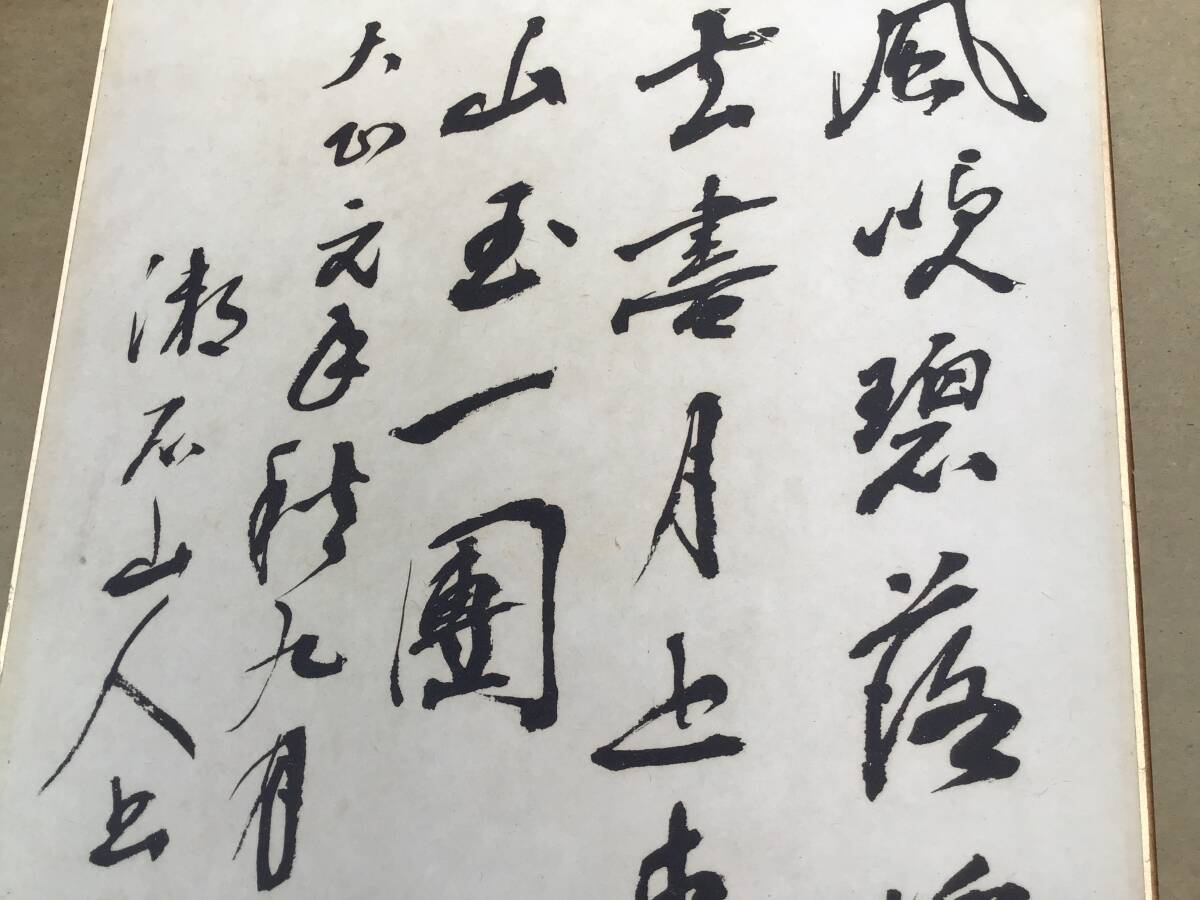 風吹碧落
云盡月上
山玉一團
大正元年秋九月
漱石山人書